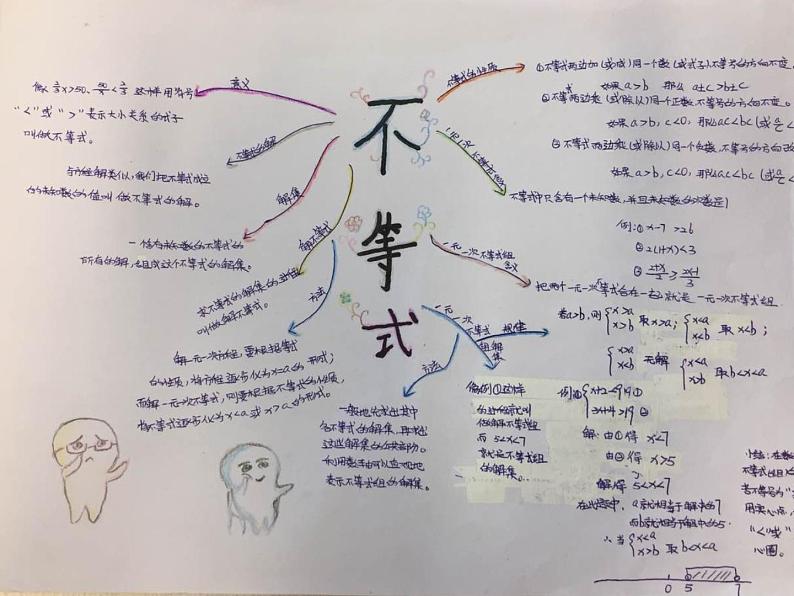 不等式
意义
像 2/3x>50, 50/x<2/3 这样用符号
"<"或">"表示大小关系的式子
叫做不等式。
不等式的解
与方程解类似,我们把不等式成立
的未知数的值叫做不等式的解。
解集
一个含有未知数的不等式的
所有的解,组成这个不等式的解集。
解不等式
求不等式的解集的过程
叫做解不等式。
方法
解一元一次方程,要根据等式
的性质,将方程逐步化为x=a的形式;
而解一元一次不等式,则要根据不等式的性质,
将不等式逐步化为x<a或x>a的形式。
不等式的性质
①不等式两边加(或减)同一个数(或式子),不等号的方向不变。
如果a>b 那么 a±c>b±c
②不等式两边乘(或除以)同一个正数,不等号的方向不变。
如果a>b,c<0,那么ac<bc(或
③不等式两边乘(或除以)同一个负数,不等号的方向改
如果a>b,c<0,那么ac<bc(或
一元一次不等式
不等式中只含有一个未知数,并且未知数的次数是1
例:①x-7>26
②2(1+x)<3
一元一次不等式组
意义
把两个一元一次不等式合在一起,就是一元一次不等式组
一元一次不等式组解集
规律
若a>b,则{x>a x>b 取x>a; {x<a x<b 取x<b;
{x>a x<b 无解 {x<a x>b 取b<x<a
方法
一般地先求出其中
各不等式的解集,再求出
这些解集的公共部分。
利用数轴可以直观地
表示不等式组的解集。
像例①这样
的过程就叫
做解不等式组
而 5<x<7
就是不等式组
的解集。
解:由①得 x<7
由②得 x>5
解得 5<x<7
在此题中, a就相当于解中的7
而b就相当于解中的5.
∴当{x<a x>b 取b<x<a
小结:在数
不等式的
若不等号的"
用实心点,
"<"或"
心圈。
0 5 7